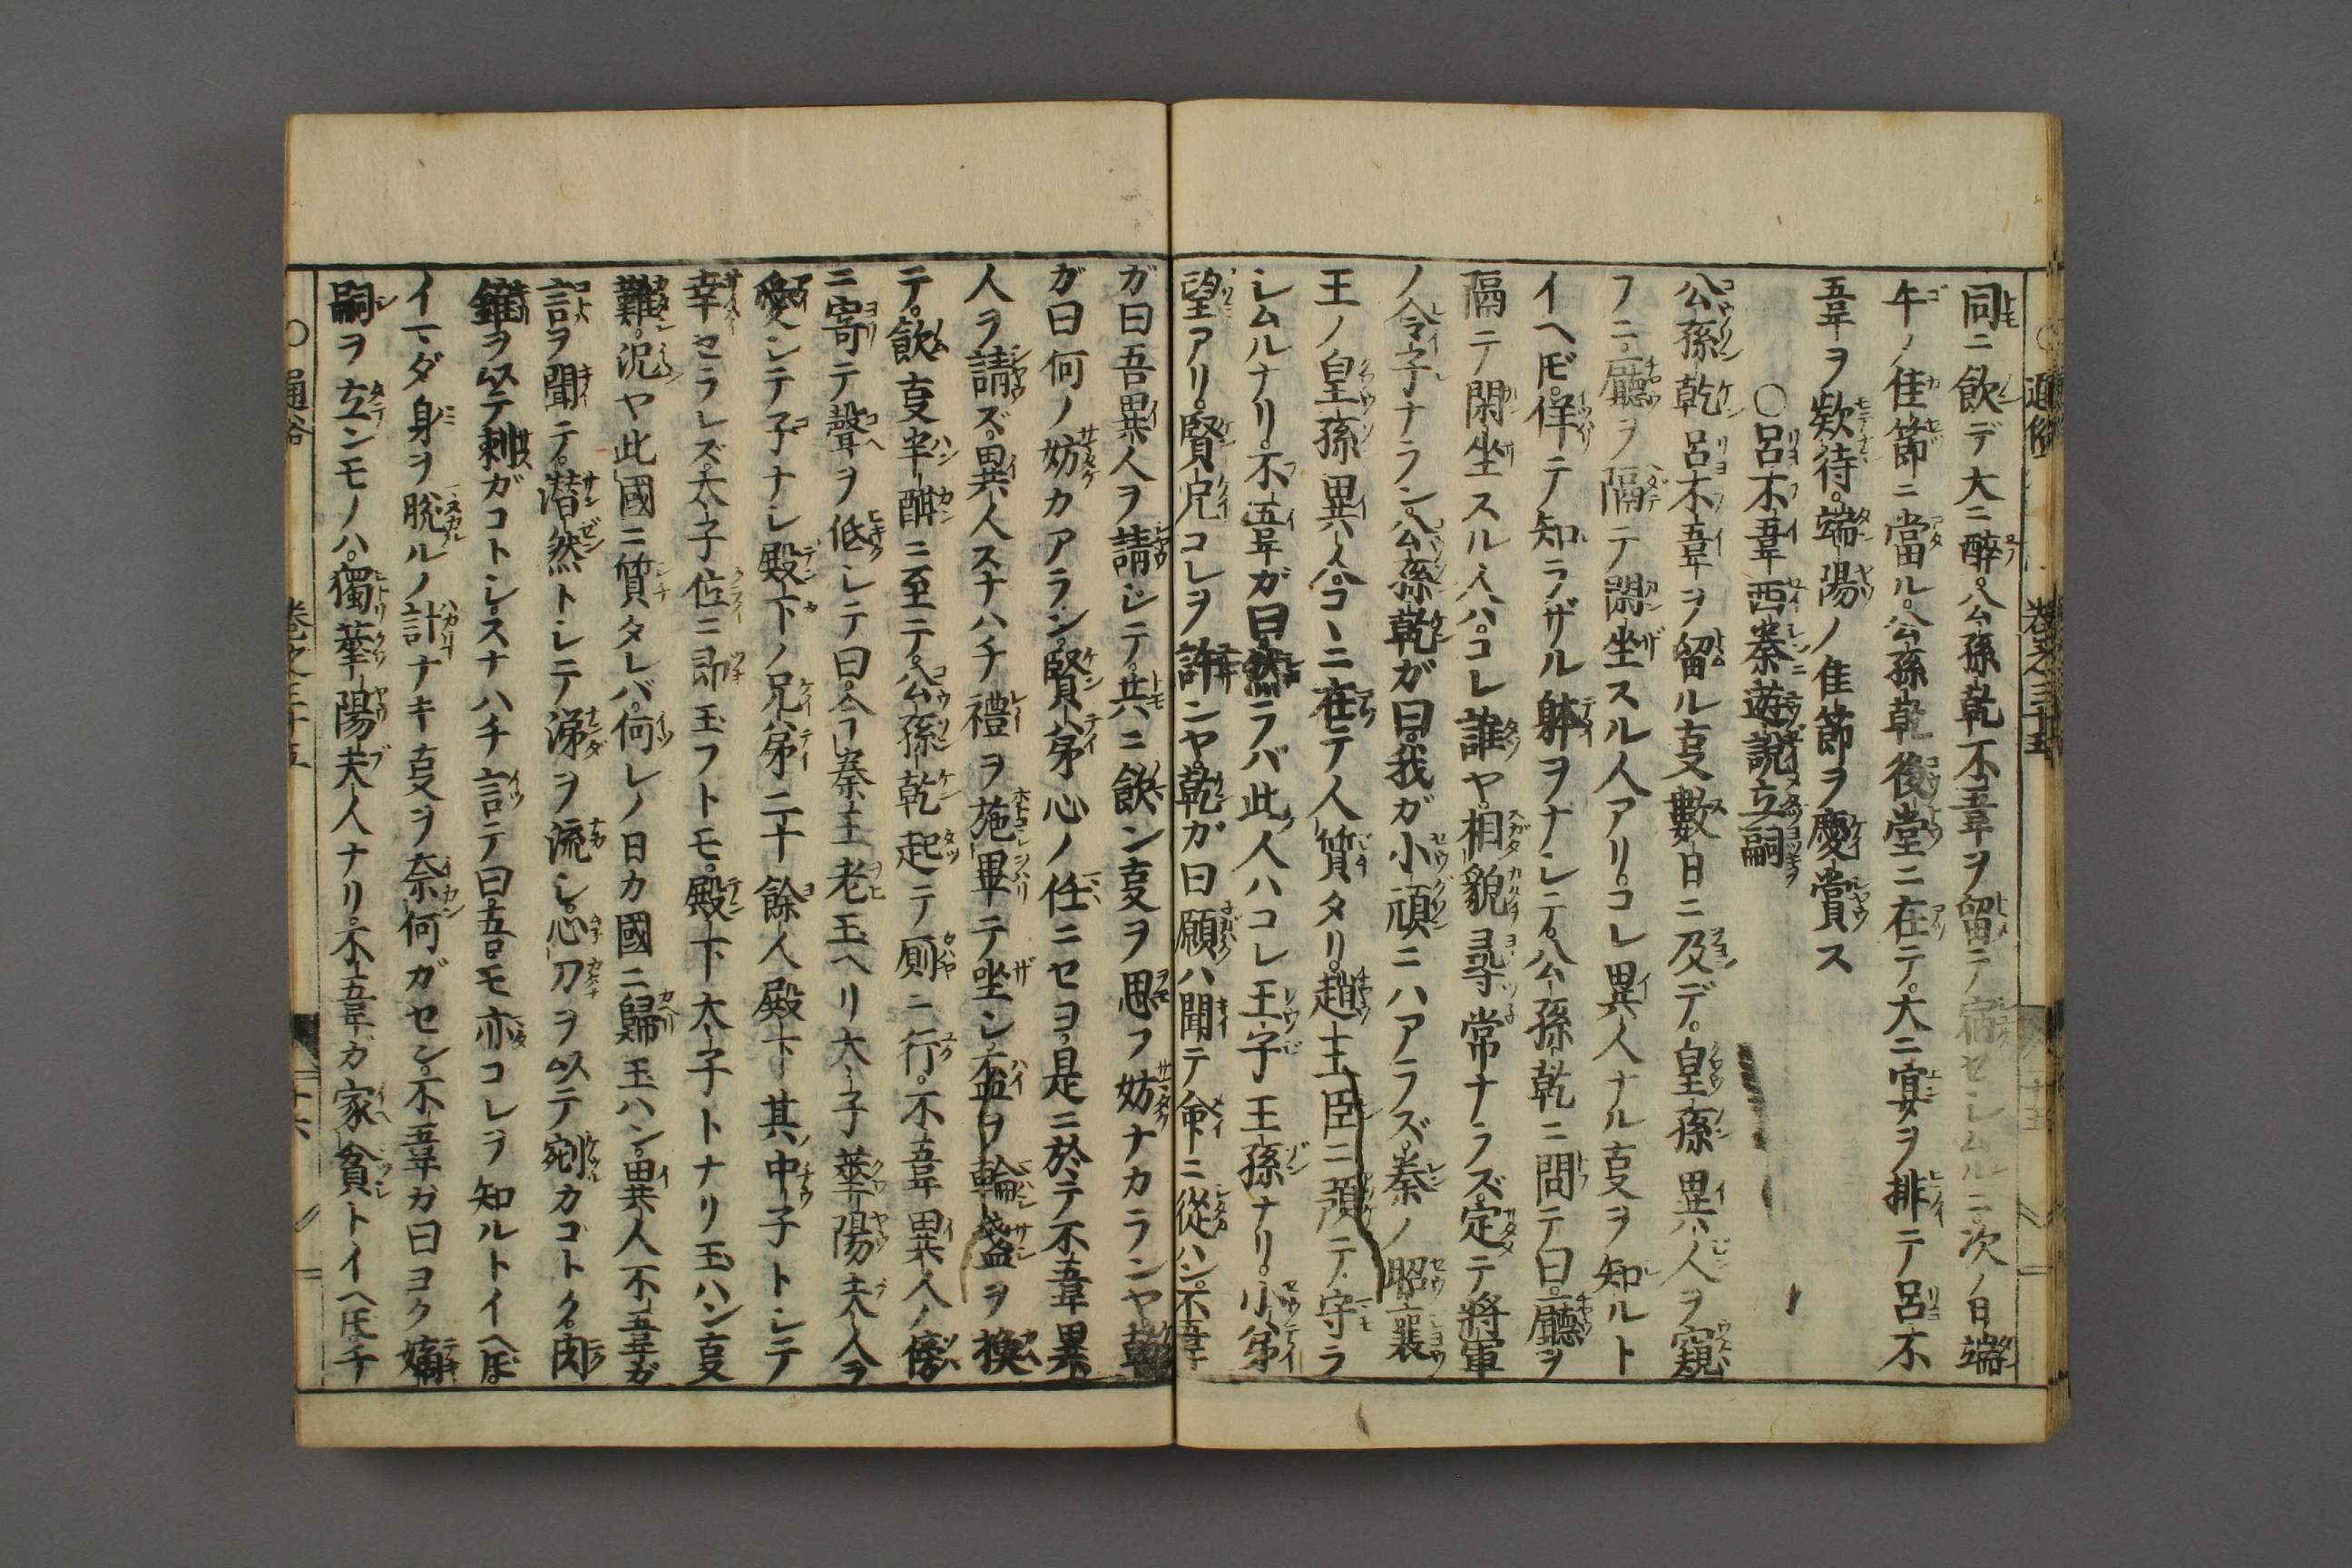 同ニ飲デ大ニ醉。公孫乾不韋ヲ留テ宿セシムルニ。次ノ日端
午ノ佳節ニ當ル。公孫乾後堂ニ在テ。大ニ宴ヲ排テ呂不
韋ヲ欵待。端陽ノ佳節ヲ慶賞ス
〇呂不韋西秦遊説立嗣
公孫乾呂不韋ヲ留ル叓數日ニ及デ。皇孫異人ヲ窺
フニ。廳ヲ隔テ閑坐スル人アリ。コレ異人ナル叓ヲ知ルト
イヘ𪜈。佯テ知ラザル躰ヲナシテ。公孫乾ニ問テ曰。廳ヲ
隔テ閑坐スル人ハ。コレ誰ヤ。相貌尋常ナラズ。定テ將軍
ノ令子ナラン。公孫乾ガ曰。我ガ小頑ニハアラズ。秦ノ昭襄
王ノ皇孫異人。今コヽニ在テ人質タリ。趙王臣ニ預テ。守ラ
シムルナリ。不韋ガ曰。然ラバ此人ハコレ王子王孫ナリ。小弟
望アリ。賢兄コレヲ許ンヤ。乾ガ曰願ハ聞テ命ニ從ハン。不韋
ガ曰吾異人ヲ請ジテ。共ニ飲ン叓ヲ思フ妨ナカランヤ。乾
ガ曰何ノ妨カアラン。賢弟心ノ任ニセヨ。是ニ於テ不韋異
人ヲ請ズ。異人スナハチ禮ヲ施畢テ坐シ。盃ヲ輪盞ヲ換
テ。飲叓半酣ニ至テ。公孫乾起テ厠ニ行。不韋異人ノ傍
ニ寄テ聲ヲ低シテ曰。今秦王老玉ヘリ太子華陽夫人ヲ
愛シテ子ナシ殿下ノ兄弟二十餘人殿下其中子トシテ
幸セラレズ。太子位ニ即玉フトモ。殿下太子トナリ玉ハン叓
難。況ヤ此國ニ質タレバ。何レノ日カ國ニ歸玉ハン。異人不韋ガ
言ヲ聞テ。潜然トシテ涕ヲ流シ。心刀ヲ以テ剜カゴトク。肉
錐ヲ以テ刺ガコトシ。スナハチ言テ曰。吾モ亦コレヲ知ルトイヘ𪜈。
イマダ身ヲ脱ルノ計ナキ叓ヲ奈何ガセン。不韋ガ曰ヨク嫡
嗣ヲ立ンモノハ。獨華陽夫人ナリ。不韋カ家貧トイヘ𪜈千
〇通俗 卷之三十五 十六